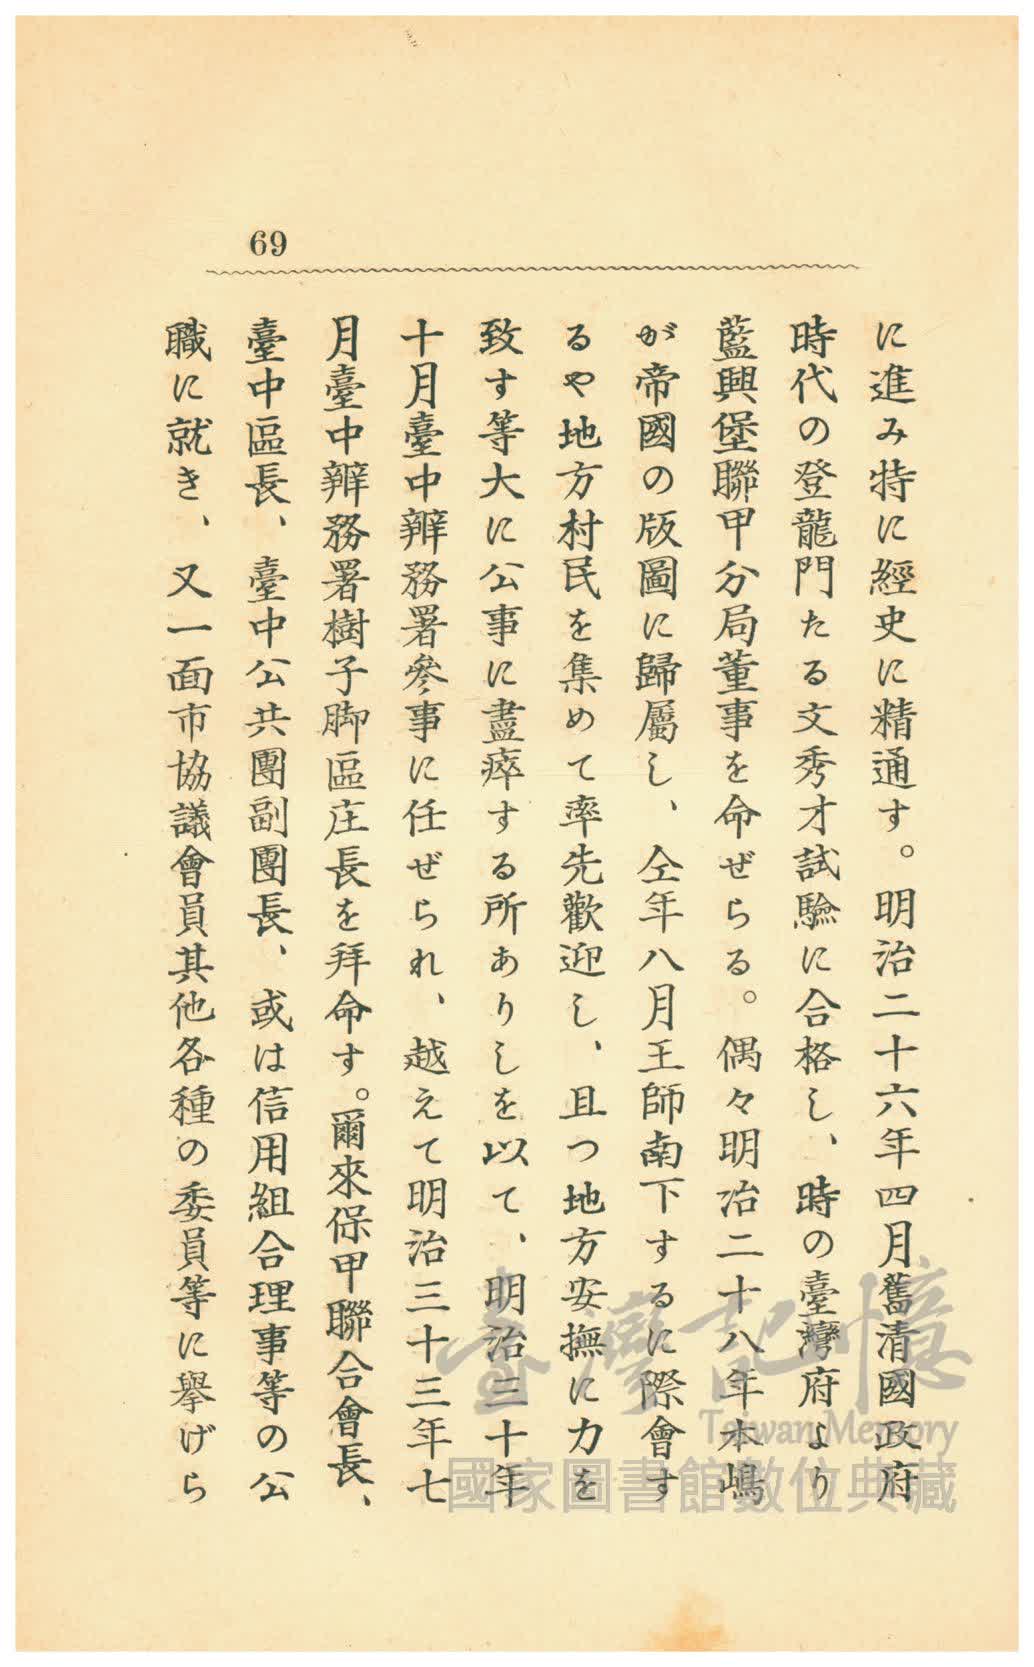 69
に進み特に經史に精通す。明治二十六年四月舊清國政府
時代の登龍門たる文秀才試驗に合格し、時の臺灣府より
藍興堡聯甲分局董事を命ぜらる。偶々明治二十八年本嶋
が帝國の版圖に歸屬し、仝年八月王師南下するに際會す
るや地方村民を集めて率先歡迎し、且つ地方安撫に力を
致す等大に公事に盡瘁する所ありしを以て、明治三十年
十月臺中辨務署參事に任ぜられ、越えて明治三十三年七
月臺中辨務署樹子脚區庄長を拜命す。爾來保甲聯合會長、
臺中區長、臺中公共團副團長、或は信用組合理事等の公
職に就き、又一面市協議會員其他各種の委員等に擧げら
臺灣記憶
Taiwan Memory
國家圖書館數位典藏